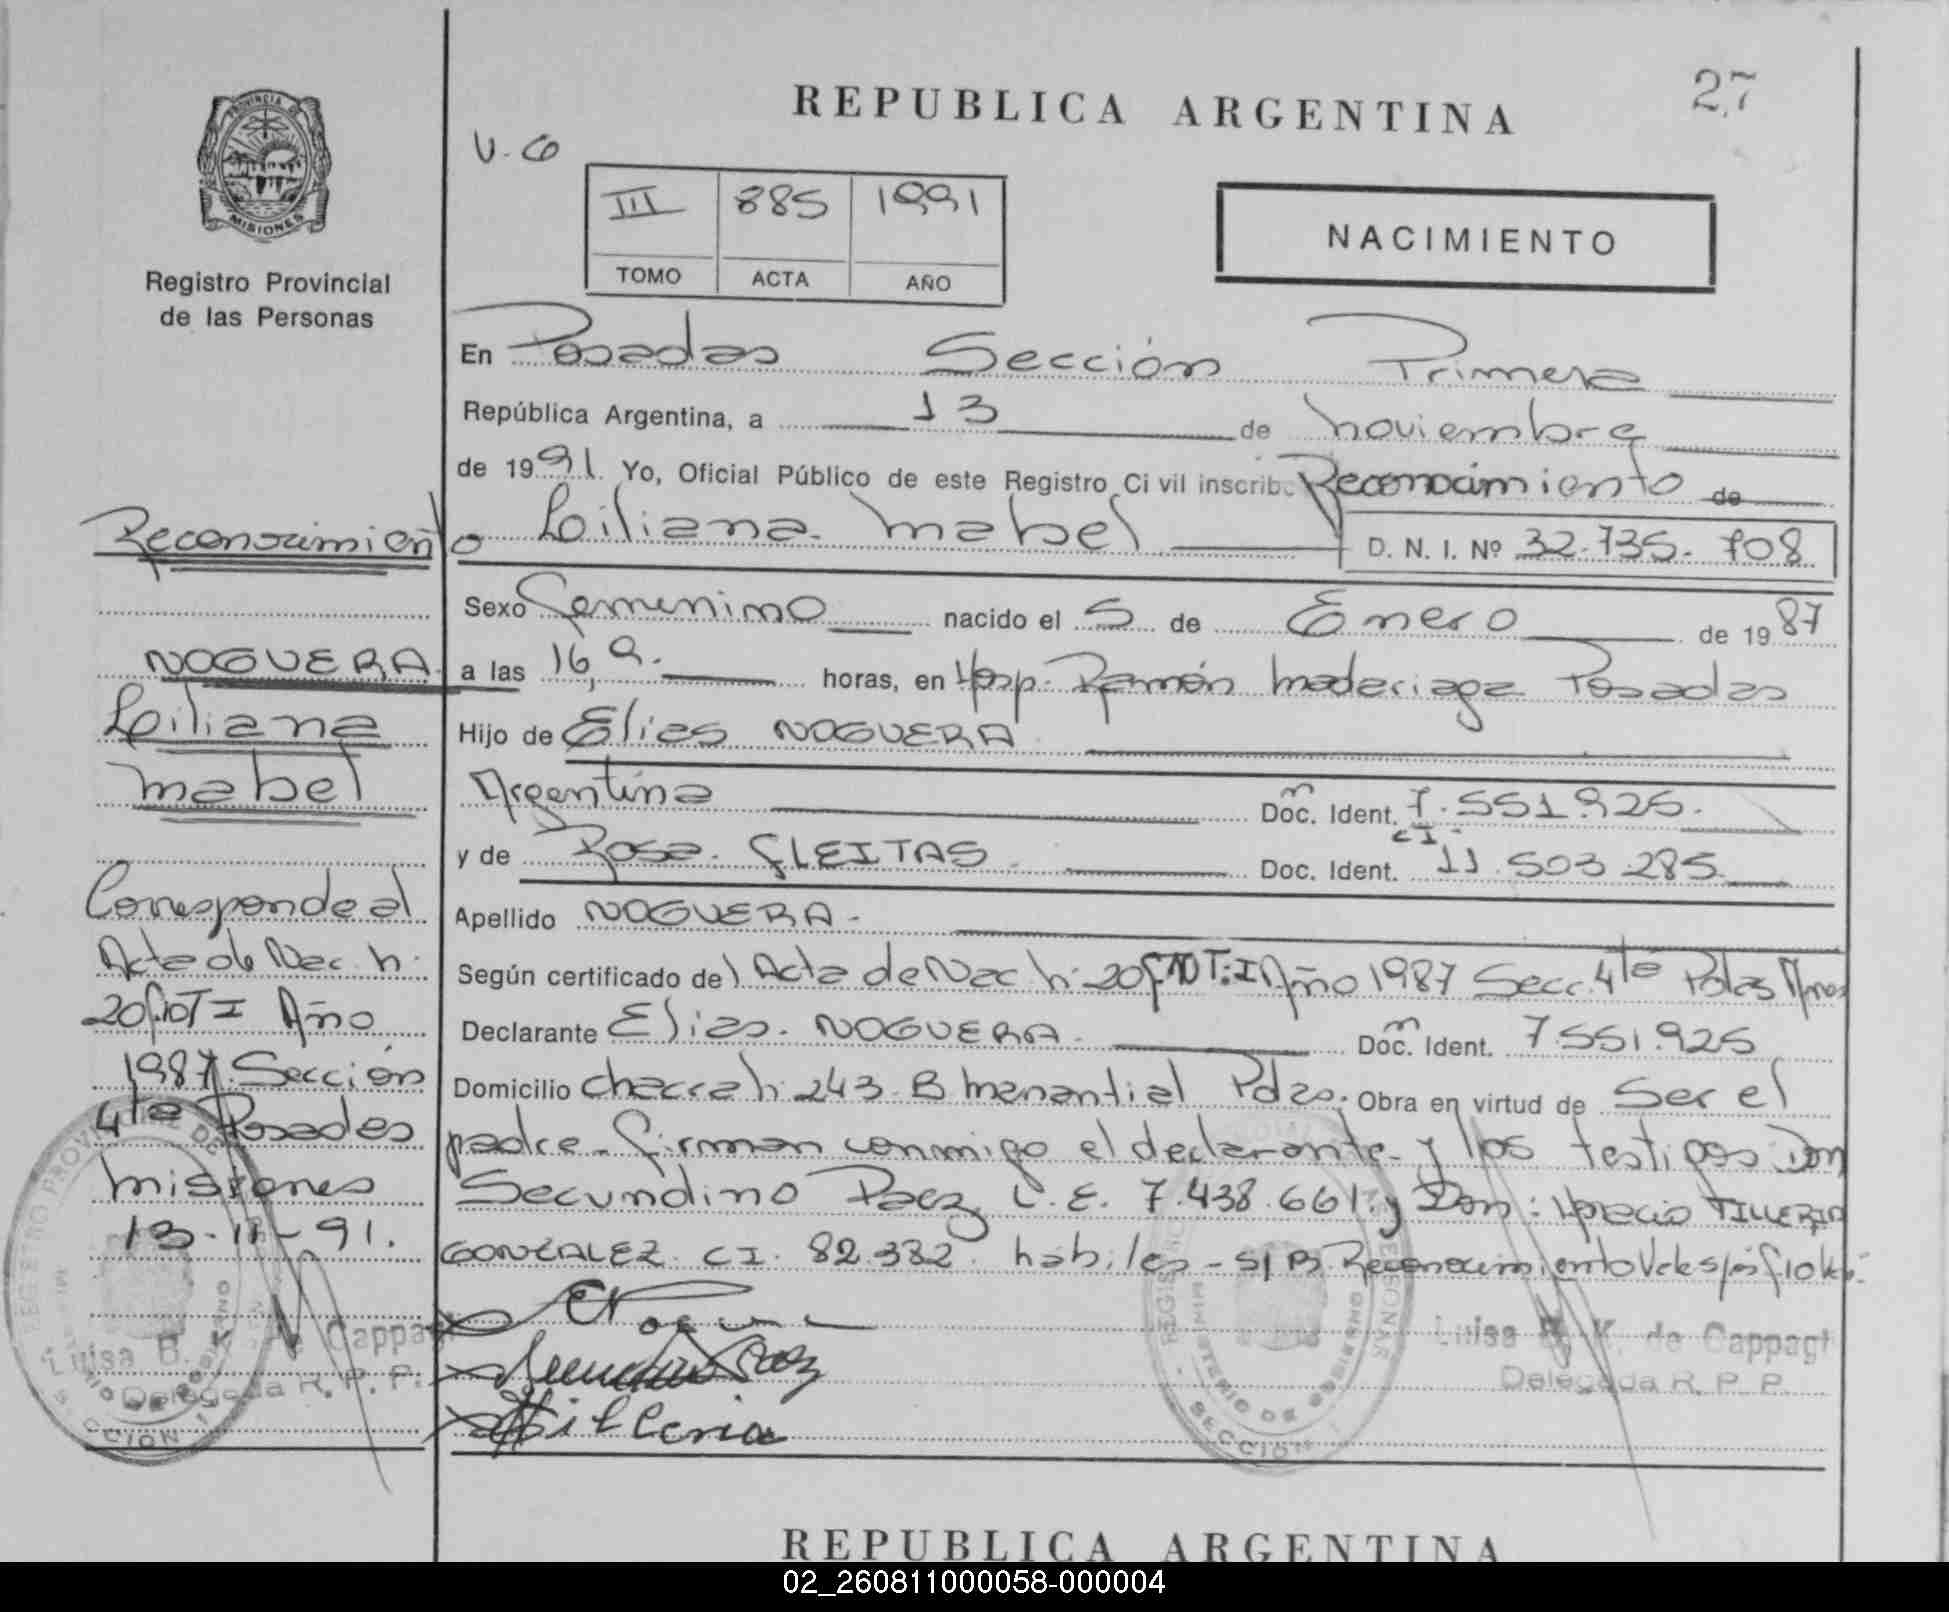 27
REPUBLICA ARGENTINA
V. G
III 885 1991
TOMO ACTA AÑO
NACIMIENTO
PROVINCIA DE
MISIONES
Registro Provincial
de las Personas
En Posadas Sección Primera
República Argentina, a 13 de noviembre
de 1991. Yo, Oficial Público de este Registro Civil inscribo Reconocimiento de
Liliana Mabel D. N. I. Nº 32.735.708
Sexo Femenino nacido el 5 de Enero de 1987
a las 16, horas, en Hosp. Ramón Madariaga Posadas
Hijo de Elias NOGUERA
Argentina Doc. Ident. 7.551.925.
y de Rosa. FLEITAS Doc. Ident. CI 11.503.285
Apellido NOGUERA.
Según certificado del Acta de Nac h: 20 T: I Año 1987 Secc. 4ta Pdas
Declarante Elias. NOGUERA. Doc. Ident. 7.551.925
Domicilio chacra h: 243 B manantial Pdas. Obra en virtud de Ser el
padre. firman conmigo el declarante y los testigos: Don
Secundino Paez L. E. 7.438.661. y Don: Horacio TILLERIA
GONZALEZ. CI. 82.382. hábiles - S/B Reconocimiento Vale
Reconocimiento
NOGUERA.
Liliana
Mabel
Corresponde al
Acta de Nac. h:
20 T I Año
1987. Sección
4ta Posadas
Misiones
13-11-91.
Luisa B. de Cappagi
Delegada R. P. P.
Luisa B. V. de Cappagi
Delegada R. P. P.
REPUBLICA ARGENTINA
02_260811000058-000004